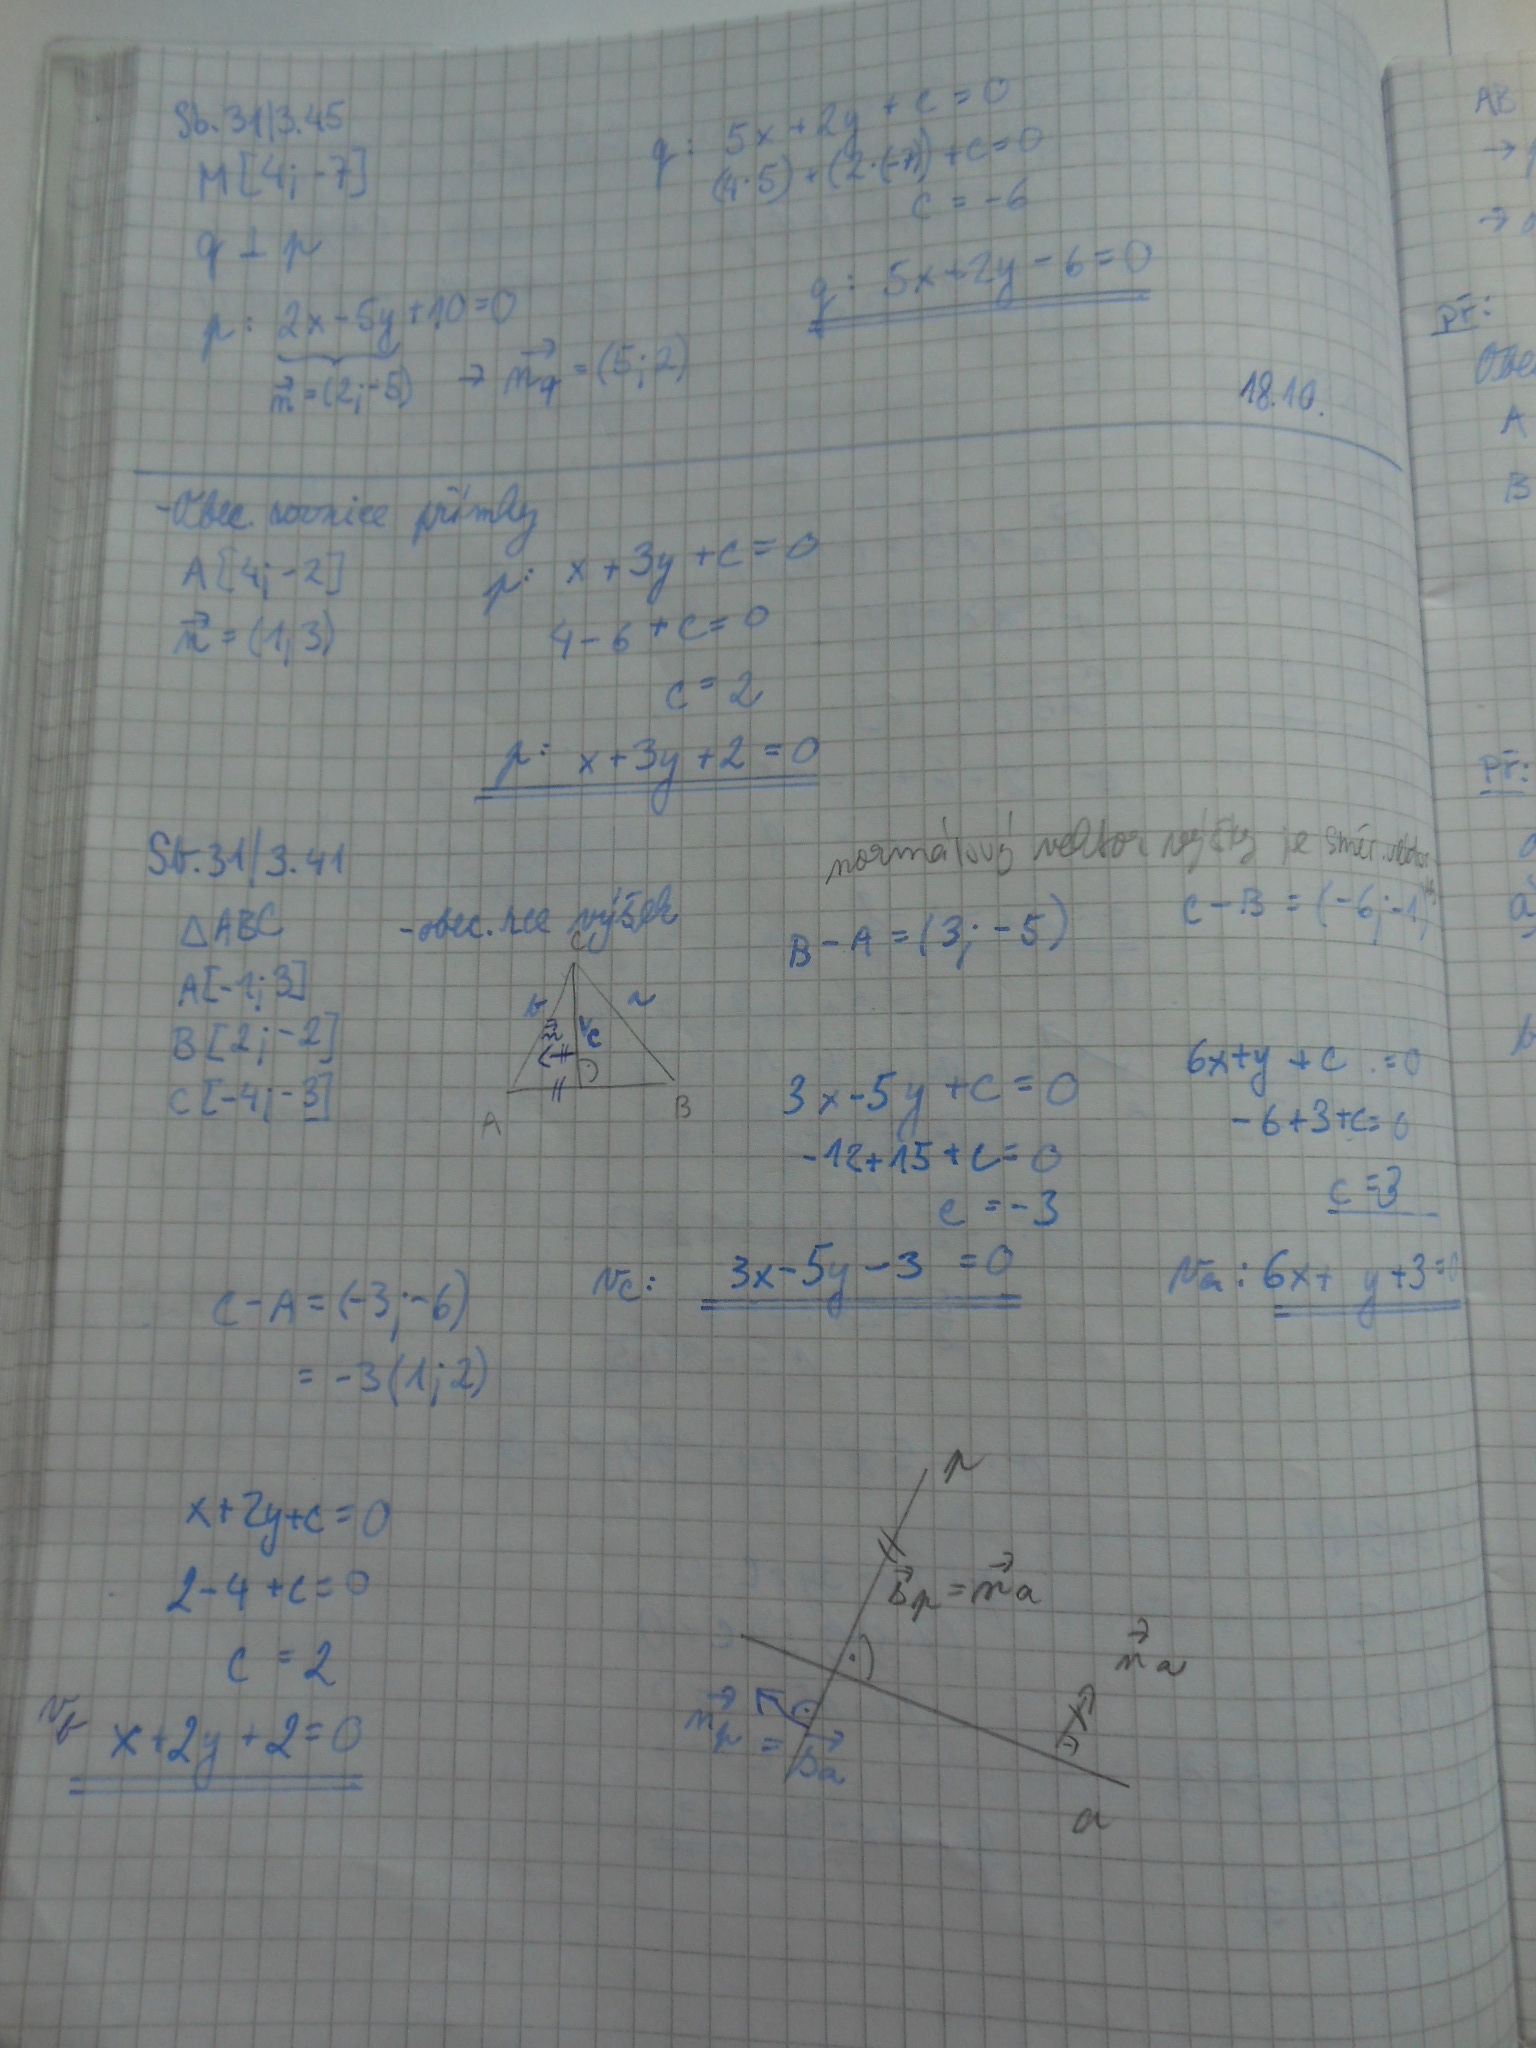 Sb.31/3.45
M[4;-7]
q ⊥ p
p: 2x-5y+10=0
n⃗=(2;-5) → n⃗q=(5;2)
q: 5x+2y+c=0
(4·5)+(2·(-7))+c=0
c=-6
q: 5x+2y-6=0
18.10.
-Obec. rovnice přímky
A[4;-2]
n⃗=(1;3)
p: x+3y+c=0
4-6+c=0
c=2
p: x+3y+2=0
Sb.31/3.41
△ABC -obec. rce výšek
A[-1;3]
B[2;-2]
C[-4;-3]
C
b a
n⃗ vc
A B
normálový vektor výšky je směr. vektor
B-A=(3;-5)
3x-5y+c=0
-12+15+c=0
c=-3
vc: 3x-5y-3=0
C-B=(-6;-1)
6x+y+c=0
-6+3+c=0
c=3
va: 6x+y+3=0
C-A=(-3;-6)
=-3(1;2)
x+2y+c=0
2-4+c=0
c=2
vb x+2y+2=0
p
s⃗p=n⃗a
n⃗a
n⃗p
=s⃗a
a
AB
→
→
Př:
Obec
A
B
Př: